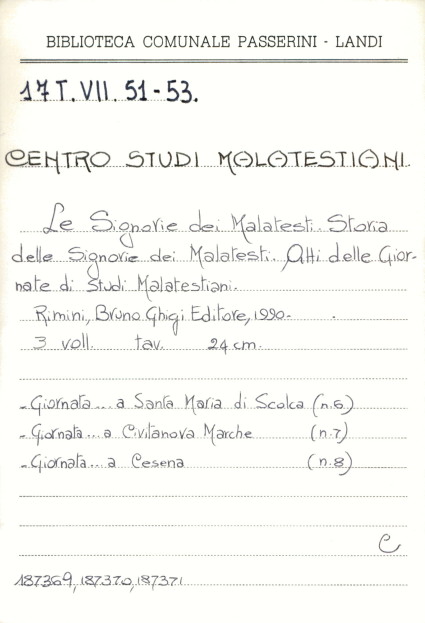 BIBLIOTECA COMUNALE PASSERINI - LANDI
17 T. VII. 51 - 53.
CENTRO STUDI MALATESTIANI.
Le Signorie dei Malatesti. Storia
delle Signorie dei Malatesti. Atti delle Gior-
nate di Studi Malatestiani.
Rimini, Bruno Ghigi Editore, 1990-
3 voll. tav. 24 cm.
- Giornata... a Santa Maria di Scolca (n.6)
- Giornata... a Civitanova Marche (n.7)
- Giornata... a Cesena (n.8)
C
187369, 187370, 187371